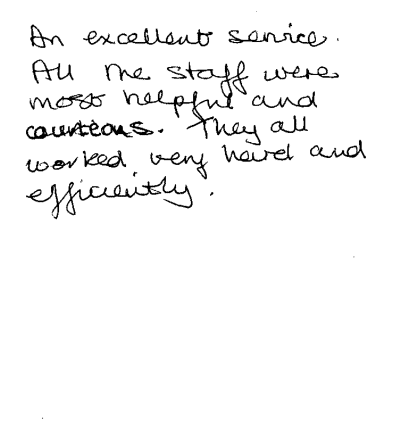 An excellent service.
All the staff were
most helpful and
courteous. They all
worked very hard and
efficiently.